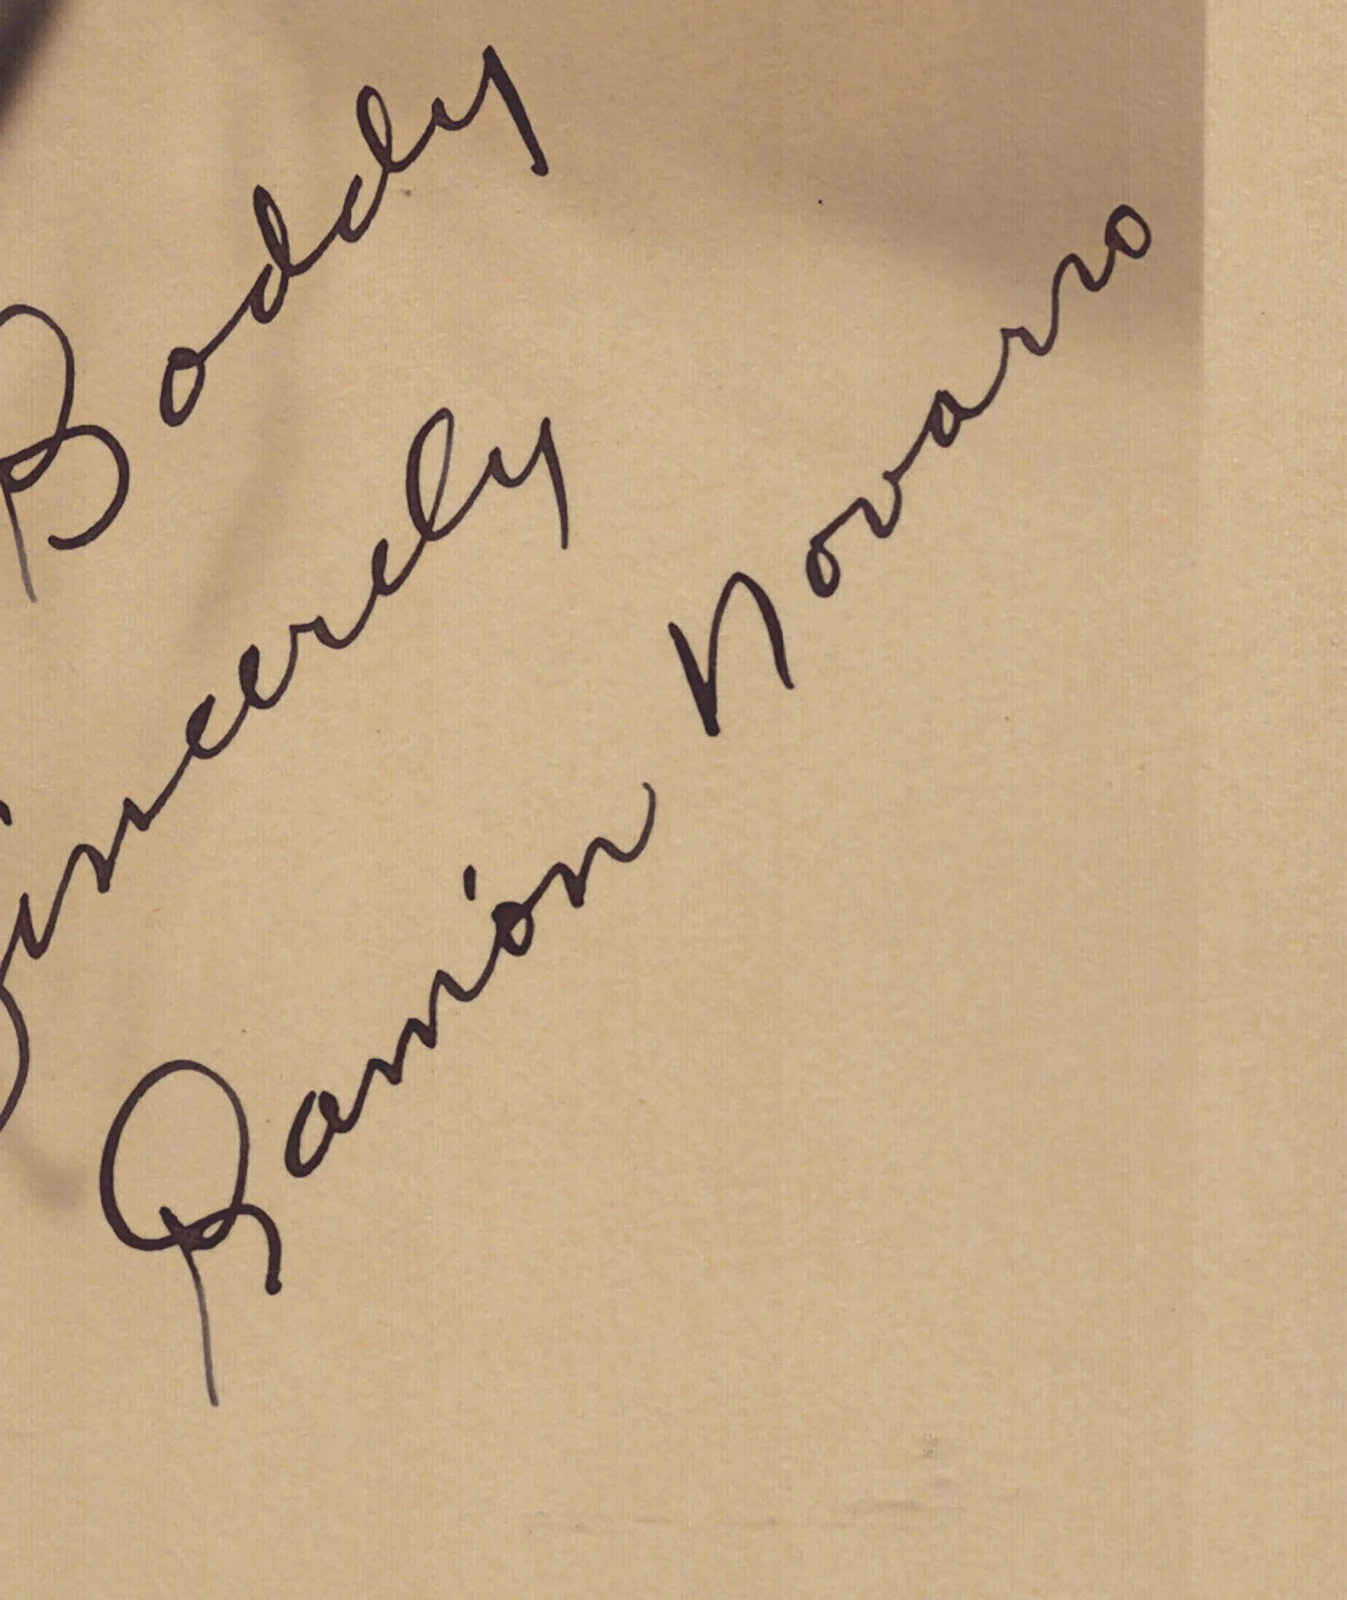 Boddy
Sincerely
Ramón Novarro